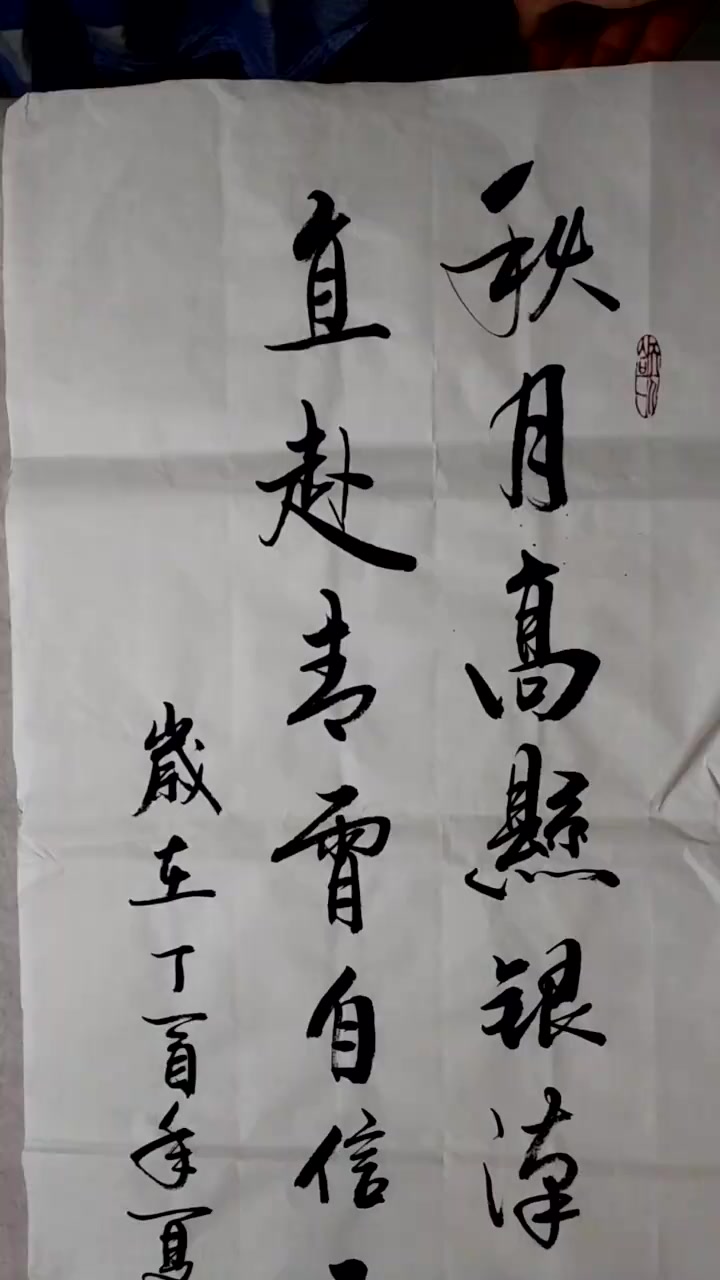 秋月高懸銀漢
直赴青霄自信
歲在丁酉年夏